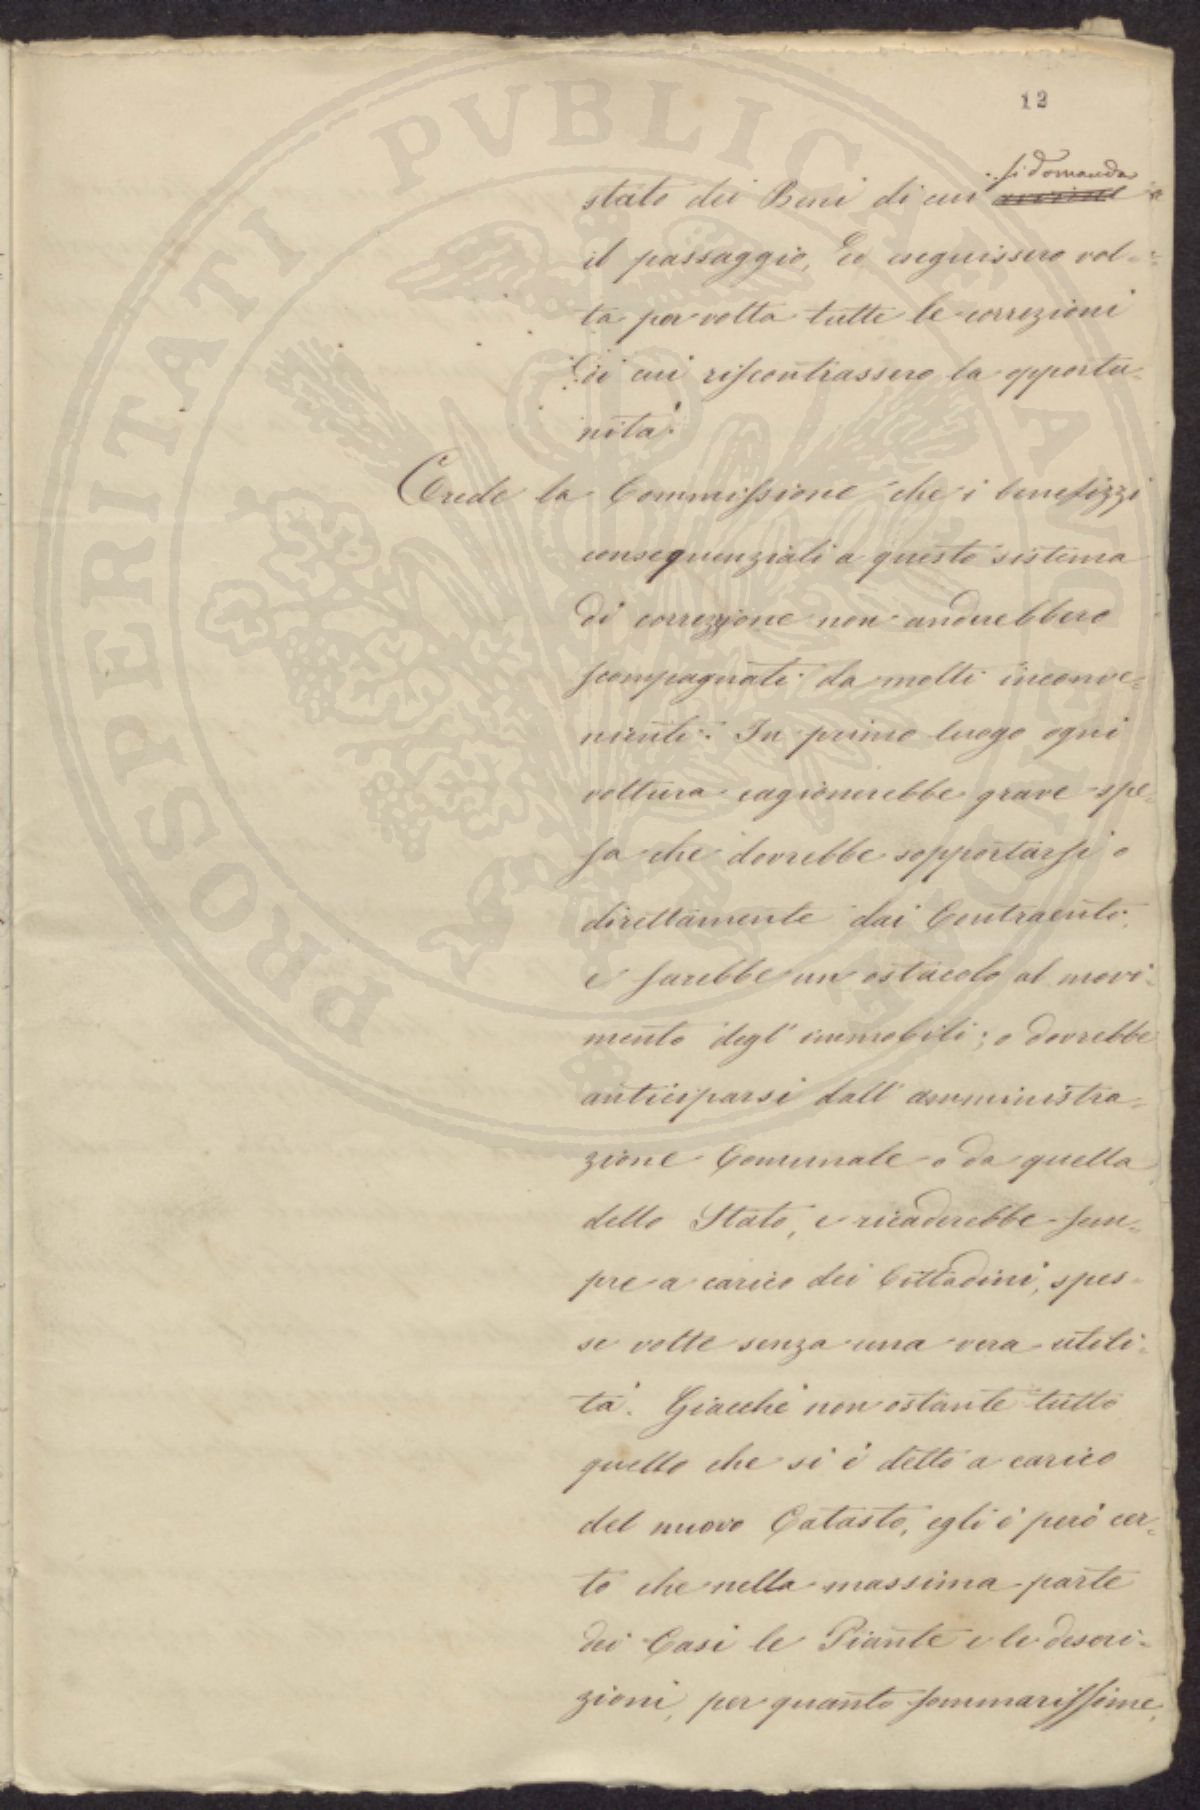 12
si domanda
stato dei Beni di cui
il passaggio, Ed eseguissero vol-
ta per volta tutte le correzioni
di cui riscontrassero la opportu-
nità.
Crede la Commissione che i benefizzi
consequenziali a questo sistema
di correzione non anderebbero
scompagnati da molti inconve-
nienti. In primo luogo ogni
voltura cagionerebbe grave spe-
sa che dovrebbe sopportarsi o
direttamente dai Contraenti,
e sarebbe un ostacolo al movi-
mento degl' immobili; o dovrebbe
anticiparsi dall' amministra-
zione Comunale o da quella
dello Stato, e ricaderebbe sem-
pre a carico dei Cittadini, spes-
se volte senza una vera utili-
tà. Giacchè non ostante tutto
quello che si è detto a carico
del nuovo Catasto, egli è però cer-
to che nella massima parte
dei Casi le Piante e le descri-
zioni, per quanto sommarissime,
PROSPERITATI PVBLICAE AVGENDAE